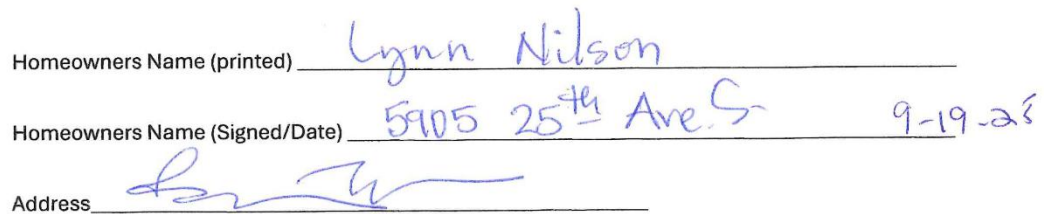 Homeowners Name (printed) Lynn Nilson
Homeowners Name (Signed/Date) 5905 25th Ave. S. 9-19-25
Address